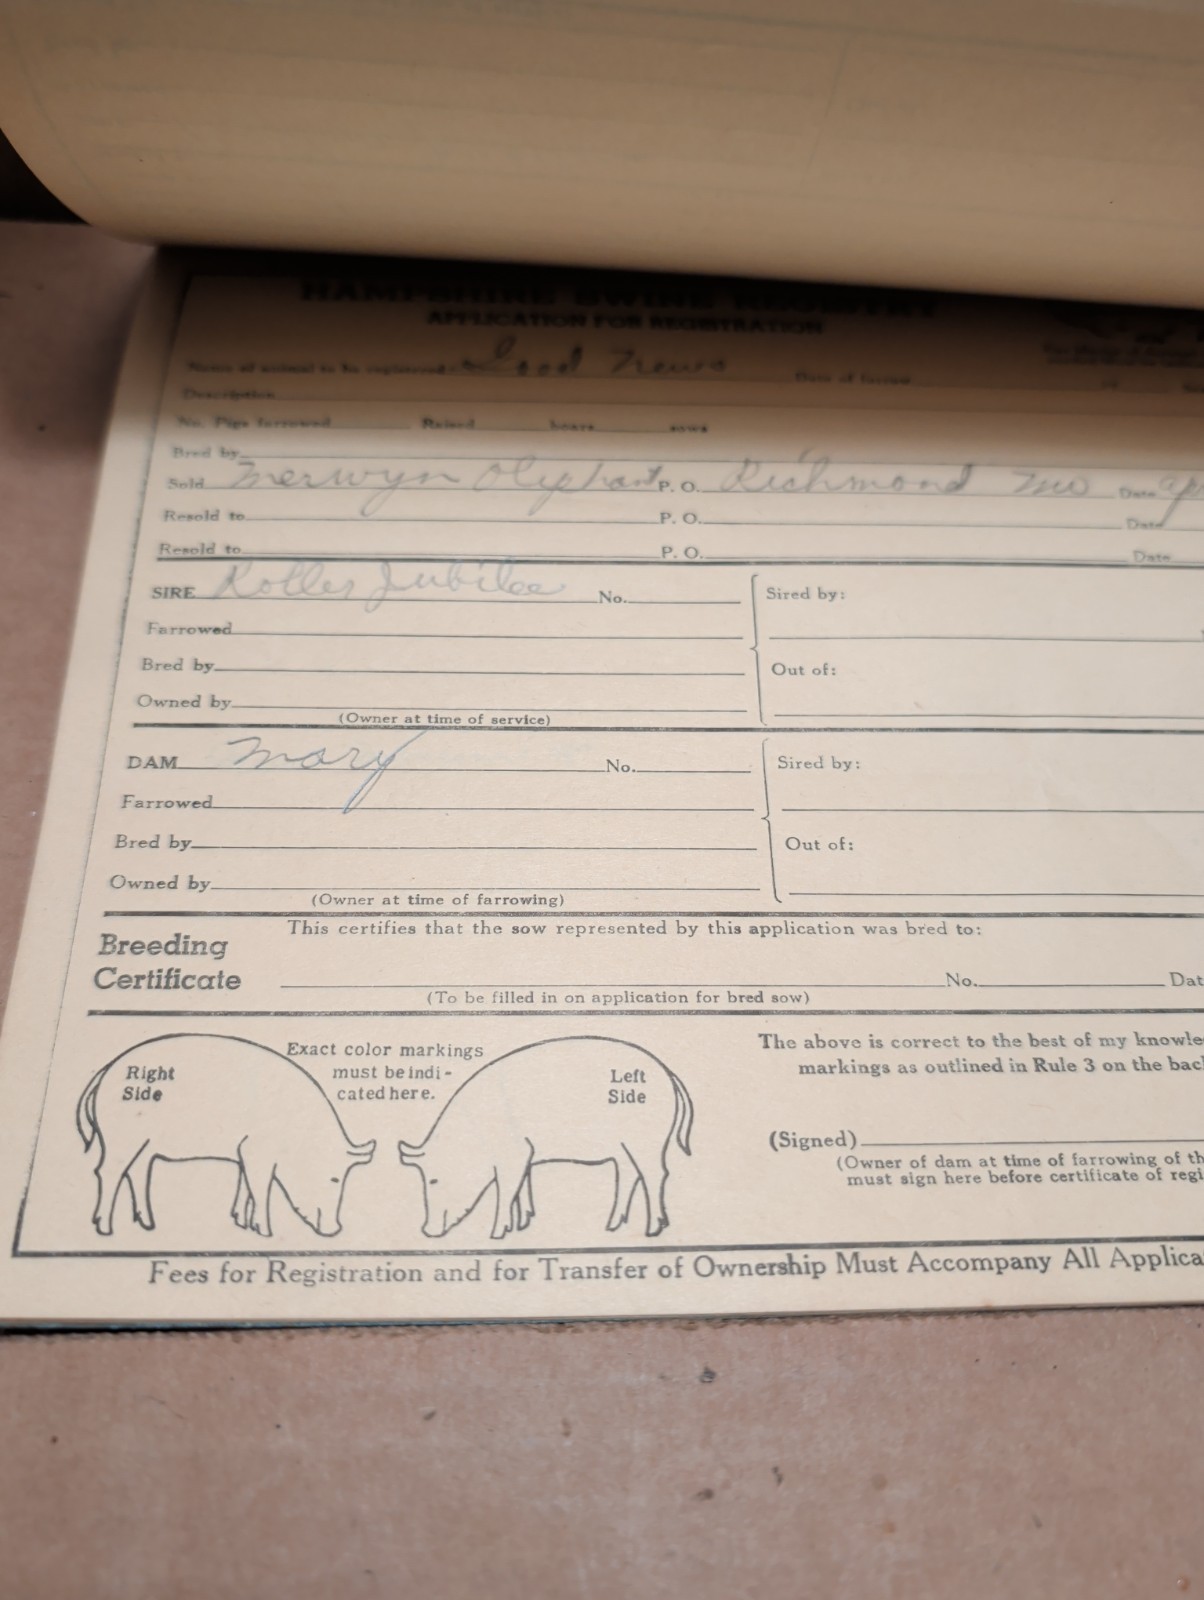 HAMPSHIRE SWINE REGISTRY
APPLICATION FOR REGISTRATION
Name of animal to be registered Good News Date of farrow
Description
No. Pigs farrowed Raised boars sows
Bred by
Sold Merwyn Oliphant P. O. Richmond Mo Date
Resold to P. O. Date
Resold to P. O. Date
SIRE Roller Jubilee No. Sired by:
Farrowed
Bred by Out of:
Owned by
(Owner at time of service)
DAM Mary No. Sired by:
Farrowed
Bred by Out of:
Owned by
(Owner at time of farrowing)
This certifies that the sow represented by this application was bred to:
Breeding
Certificate No. Dat
(To be filled in on application for bred sow)
Right
Side
Exact color markings
must be indi-
cated here.
Left
Side
The above is correct to the best of my knowle
markings as outlined in Rule 3 on the bac
(Signed)
(Owner of dam at time of farrowing of th
must sign here before certificate of regi
Fees for Registration and for Transfer of Ownership Must Accompany All Applica